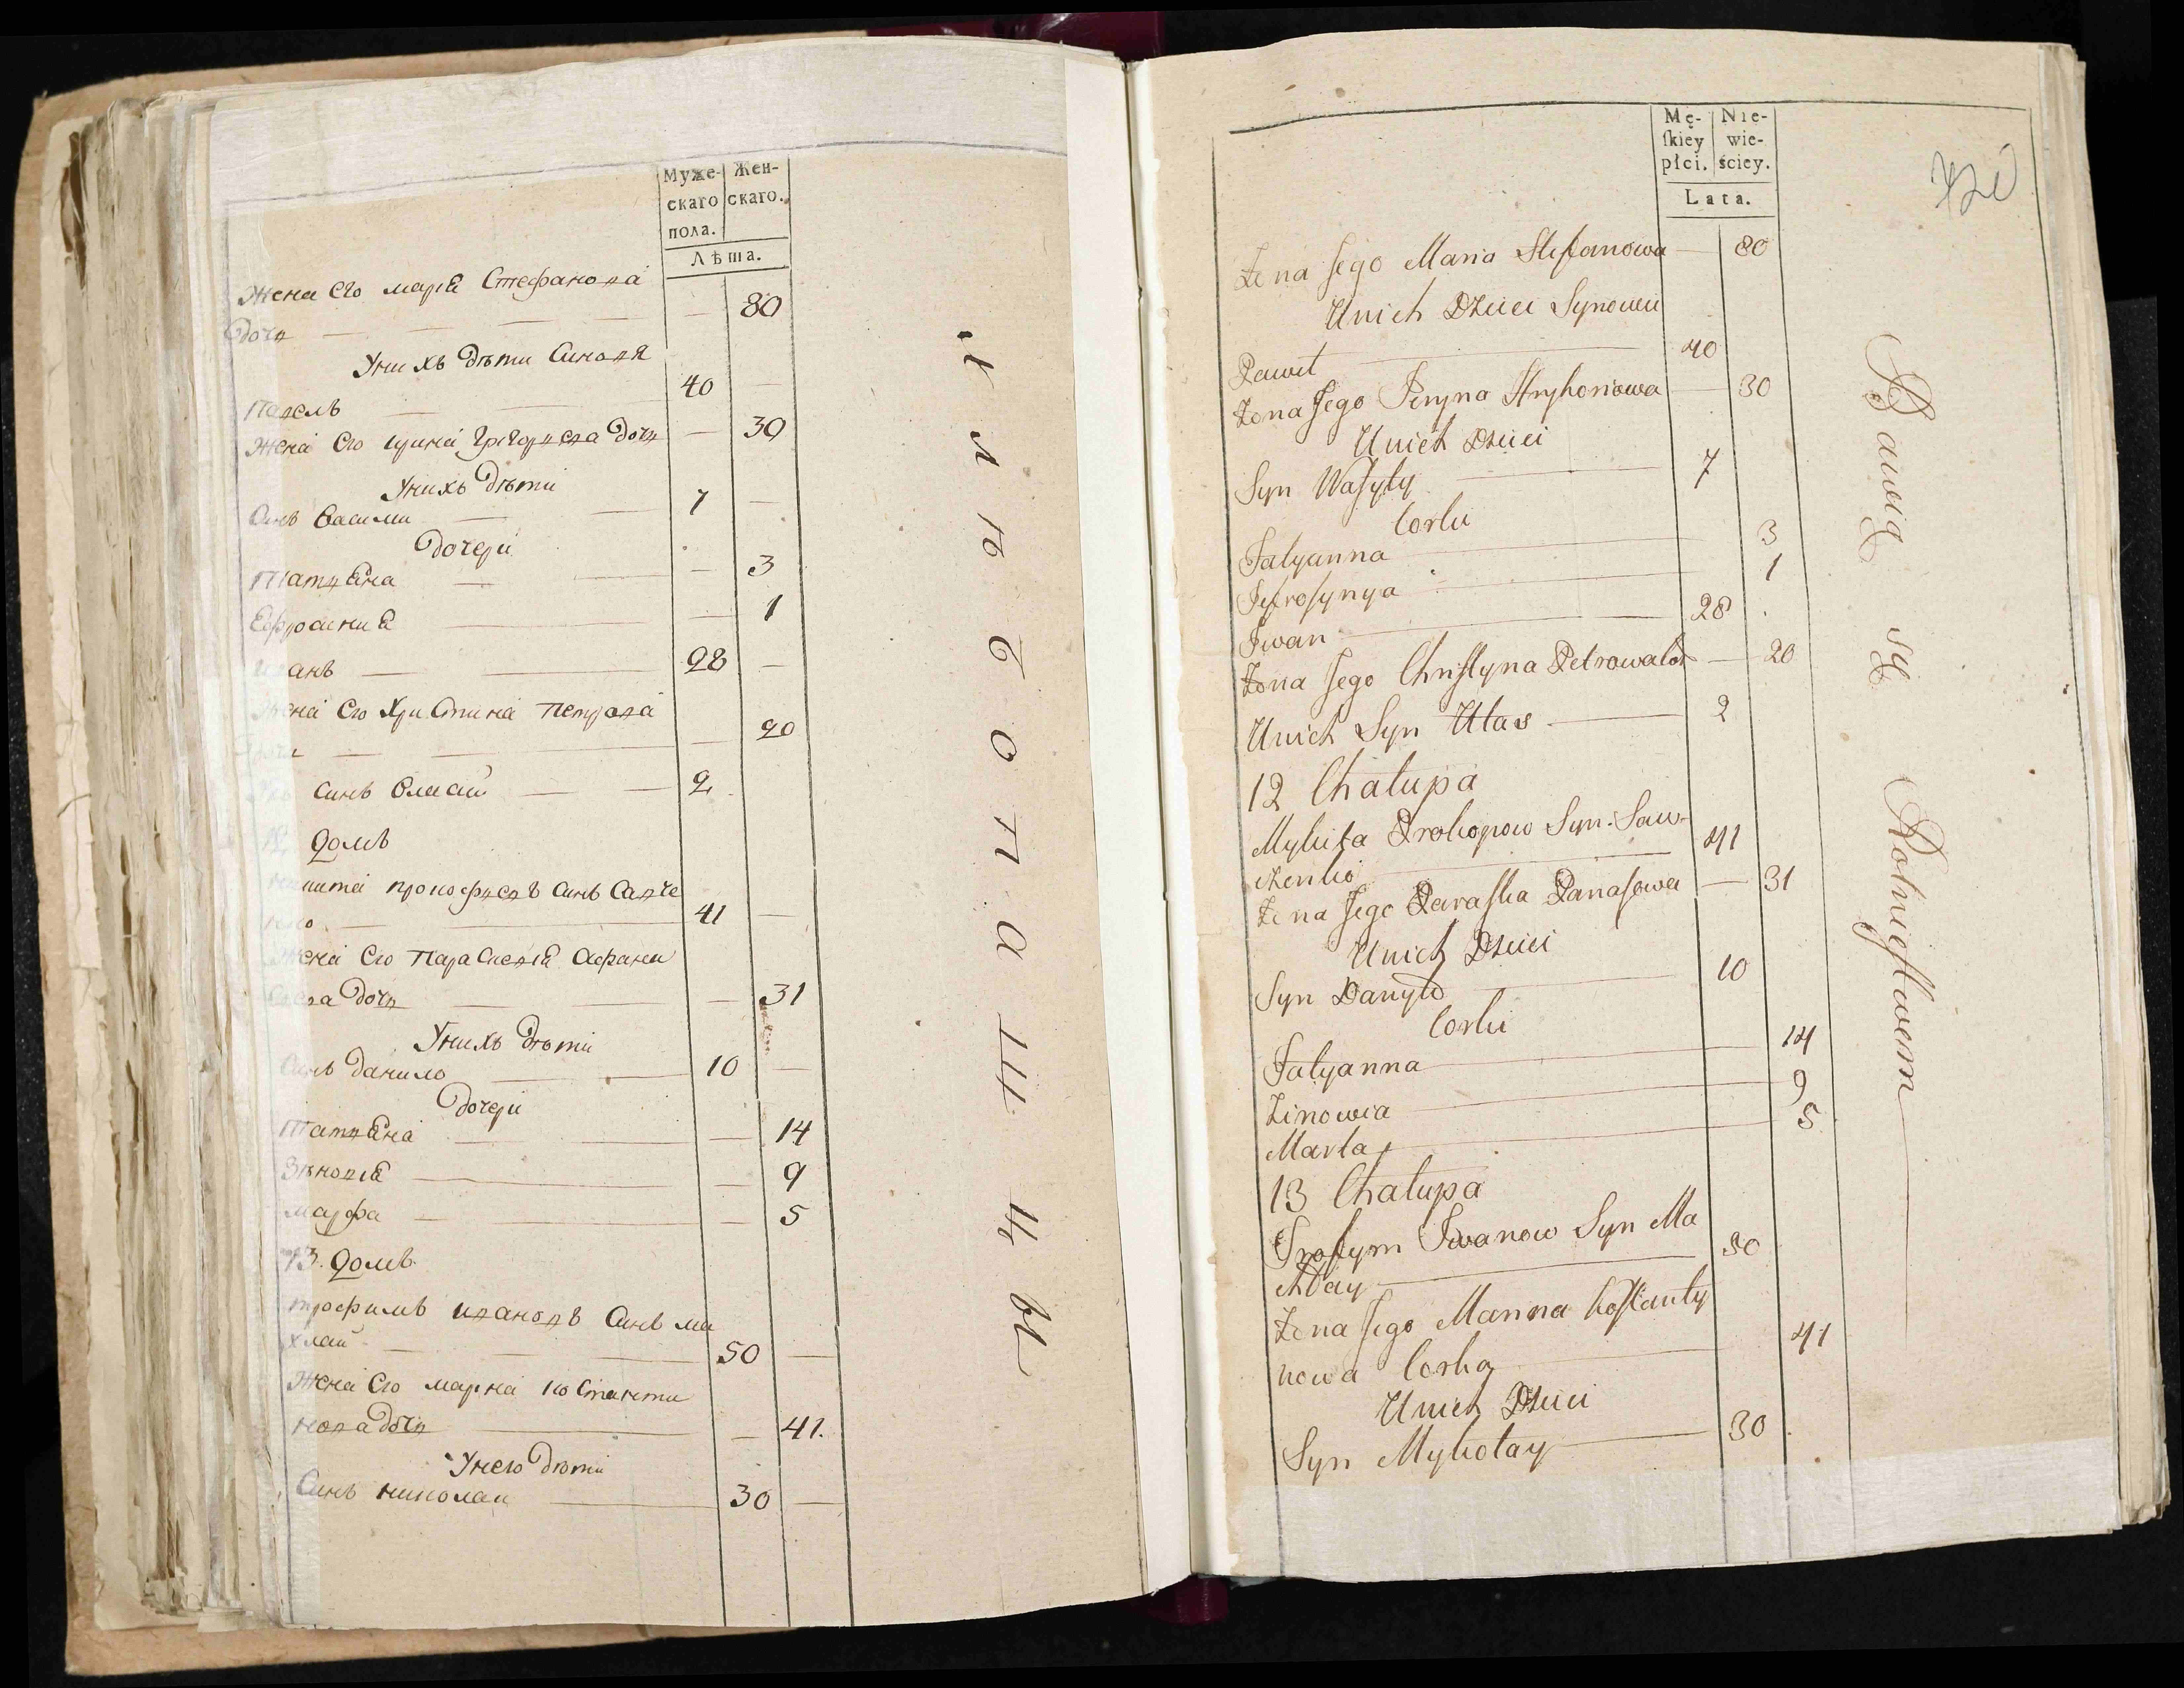 Муже-
скаго
пола.
Жен-
скаго.
Лѣта.
Жена его мария Стефанова
дочь 80
Унихъ дѣти Синовя
Павелъ 40
Жена его ирина григорьева дочь 30
Унихъ дѣти
Синъ Василии 7
дочери
Татьяна 3
Ефросиния 1
анъ 28
Жена его Христина Петрова
дочь 20
синъ Власий 2
12 домъ
никита прокофьевъ Синъ Савче
нко 41
Жена его Параскевия Афанаи
сиева дочь 31
Унихъ дѣти
Синъ данило 10
дочери
Татьяна 14
Зѣновия 9
марфа 5
13. домъ
трофимъ ивановъ Синъ ма
хлай 50
Жена его марина костанти
нова дочь 41.
Унего дѣти
Синъ николаи 30
Mę-
ſkiey
płci.
Nie-
wie-
ściey.
Lata.
Żona Jego Maria Stefanowa 80
Unich Dzieci Synowei
Paweł 40
Żona Jego Jryna Hryhoriowa 30
Unich Dzieci
Syn Waſyly 7
Corki
Tatyanna 3
Jefroſynya 1
Jwan 28
Żona Jego Chriſtyna Petrowa 20
Unich Syn Ułas 2
12 Chałupa
Mykita Prokopow Syn Saw-
czenko 41
Żona Jego Paraſka Panaſowa 31
Unich Dzieci
Syn Danyło 10
Corki
Tatyanna 14
Zinowia 9
Marta 5
13 Chałupa
Trofym Jwanow Syn Ma
chłay 50
Żona Jego Marina Koſtanty
nowa Corka 41
Unich Dzieci
Syn Mykołay 30
Bawią
się
Rolnictwem